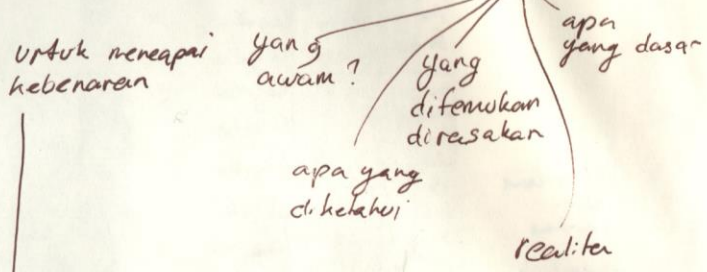 untuk mencapai
kebenaran
yang
awam?
yang
ditemukan
dirasakan
apa
yang dasar
apa yang
diketahui
realita